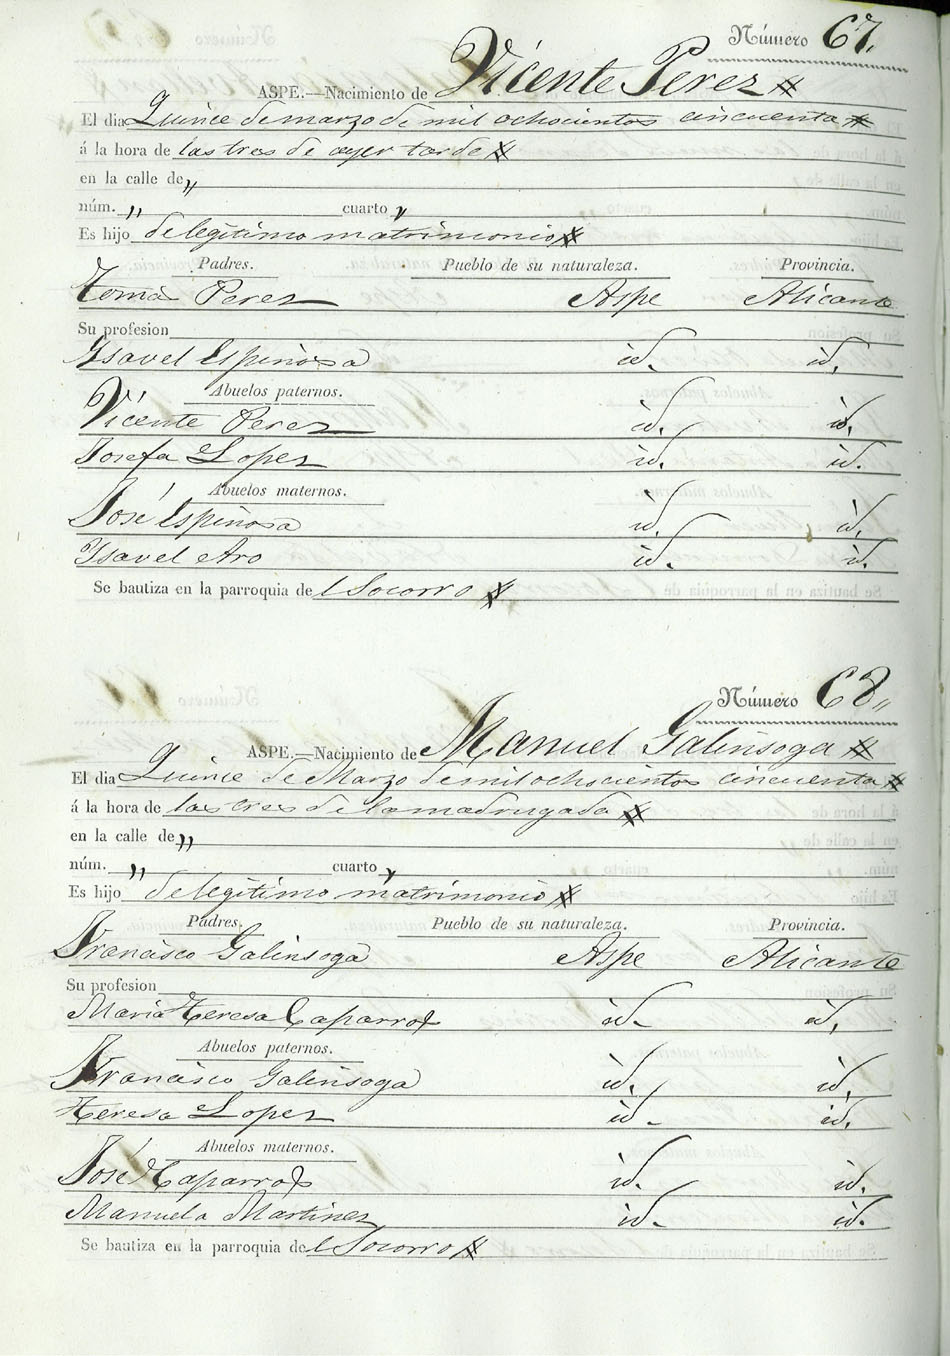 Número 67.
ASPE.—Nacimiento de Vicente Perez
El dia Quince de marzo de mil ochocientos cincuenta
á la hora de las tres de ayer tarde
en la calle de „
núm. „ cuarto „
Es hijo de legitimo matrimonio
Padres. Pueblo de su naturaleza. Provincia.
Tomás Perez Aspe Alicante
Su profesion
Ysavel Espinosa id. id.
Abuelos paternos.
Vicente Perez id. id.
Josefa Lopez id. id.
Abuelos maternos.
José Espinosa id. id.
Ysavel Aro id. id.
Se bautiza en la parroquia de l Socorro
Número 68„
ASPE.—Nacimiento de Manuel Galinsoga
El dia Quince de Marzo de mil ochocientos cincuenta
á la hora de las tres de la madrugada
en la calle de „
núm. „ cuarto „
Es hijo de legitimo matrimonio
Padres. Pueblo de su naturaleza. Provincia.
Francisco Galinsoga Aspe Alicante
Su profesion
Maria Teresa Caparros id. id.
Abuelos paternos.
Francisco Galinsoga id. id.
Teresa Lopez id. id.
Abuelos maternos.
José Caparros id. id.
Manuela Martinez id. id.
Se bautiza en la parroquia de l Socorro